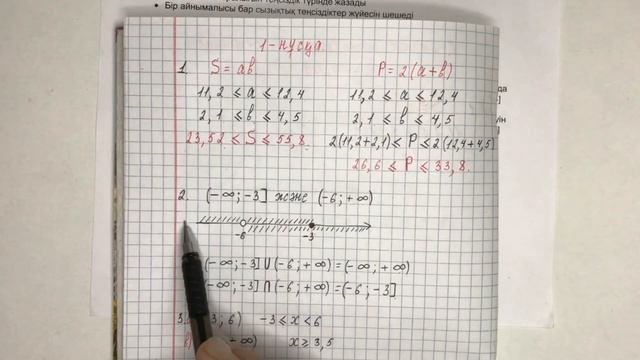 теңсіздік түрінде жазады
• Бір айнымалысы бар сызықтық теңсіздіктер жүйесін шешеді
1-нұсқа
1. S = ab P = 2(a+b)
11,2 ≤ a ≤ 12,4 11,2 ≤ a ≤ 12,4
2,1 ≤ b ≤ 4,5 2,1 ≤ b ≤ 4,5
23,52 ≤ S ≤ 55,8 2(11,2+2,1) ≤ P ≤ 2(12,4+4,5)
26,6 ≤ P ≤ 33,8
2. (-∞; -3] және (-6; +∞)
-6 -3
(-∞; -3] ∪ (-6; +∞) = (-∞; +∞)
(-∞; -3] ∩ (-6; +∞) = (-6; -3]
3. 3; 6) -3 ≤ x < 6
-∞) x ≥ 3,5